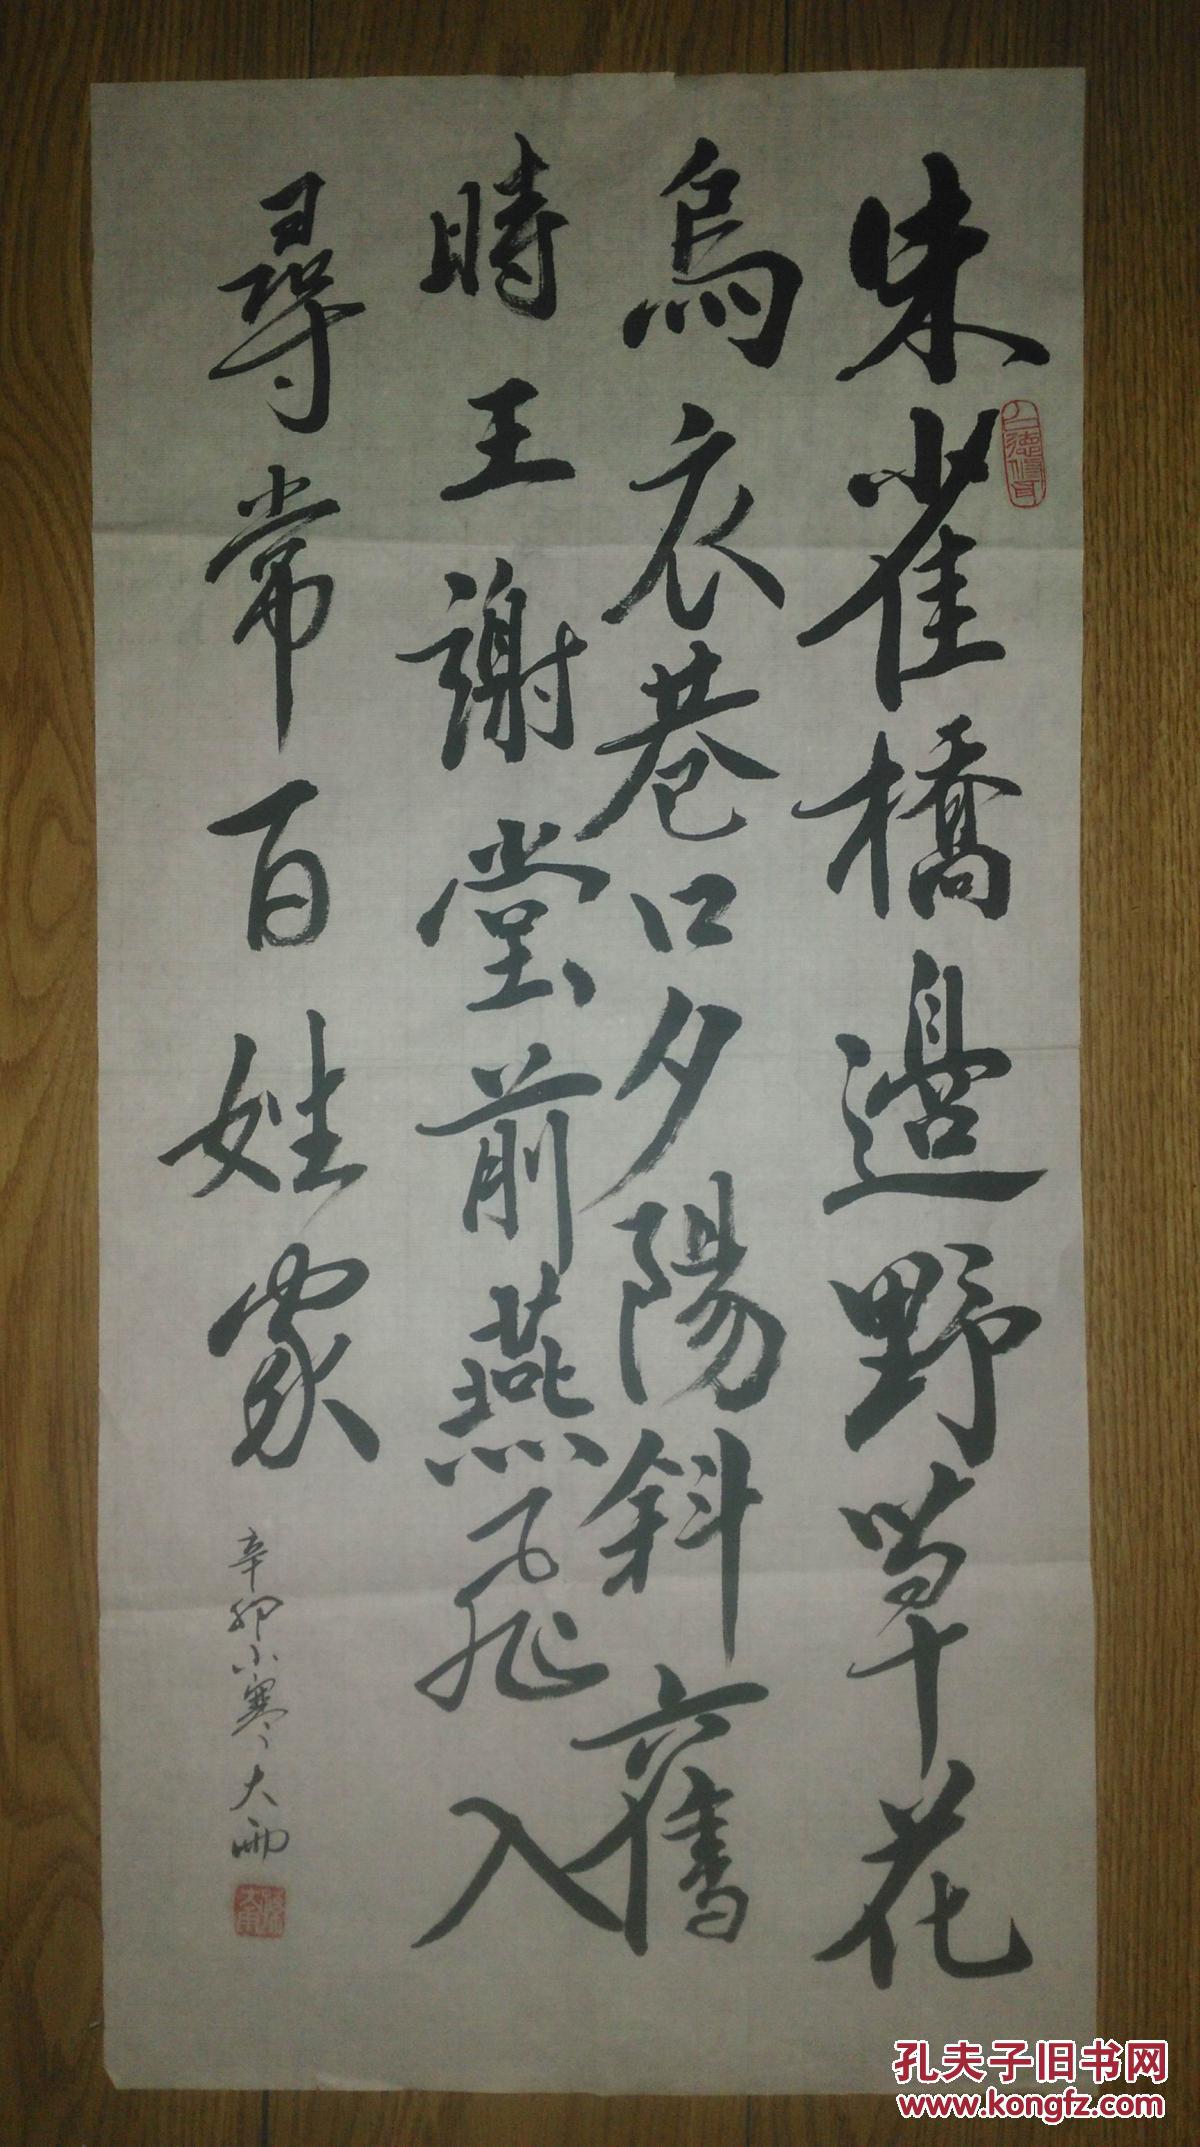 朱雀橋邉野草花
烏衣巷口夕陽斜舊
時王謝堂前燕飛入
尋常百姓家
辛卯小寒大雨
孔夫子旧书网
www.kongfz.com